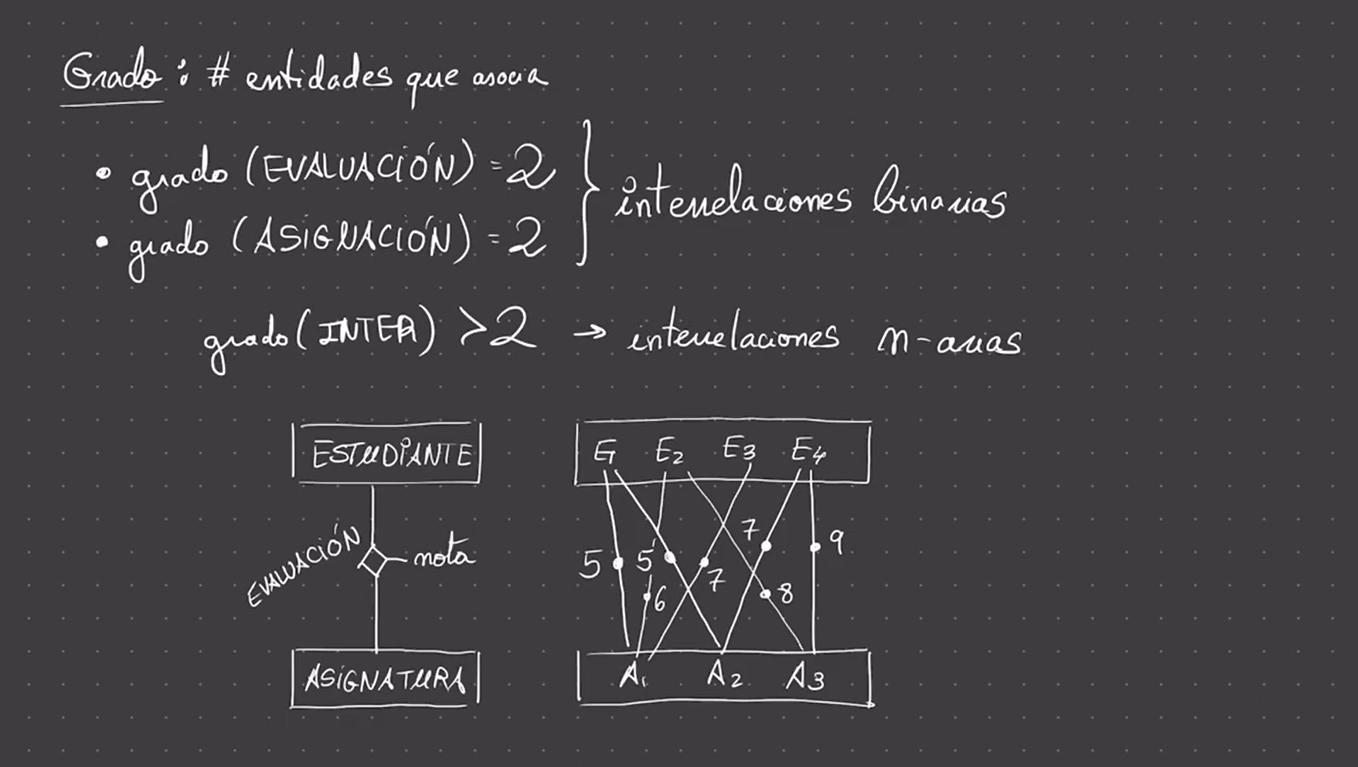 Grado : # entidades que asocia
• grado (EVALUACIÓN) = 2
• grado (ASIGNACIÓN) = 2
interrelaciones binarias
grado (INTER) > 2 → interrelaciones n-arias
ESTUDIANTE
EVALUACIÓN
nota
ASIGNATURA
E1 E2 E3 E4
5 5' 7 7 9
6 8
A1 A2 A3